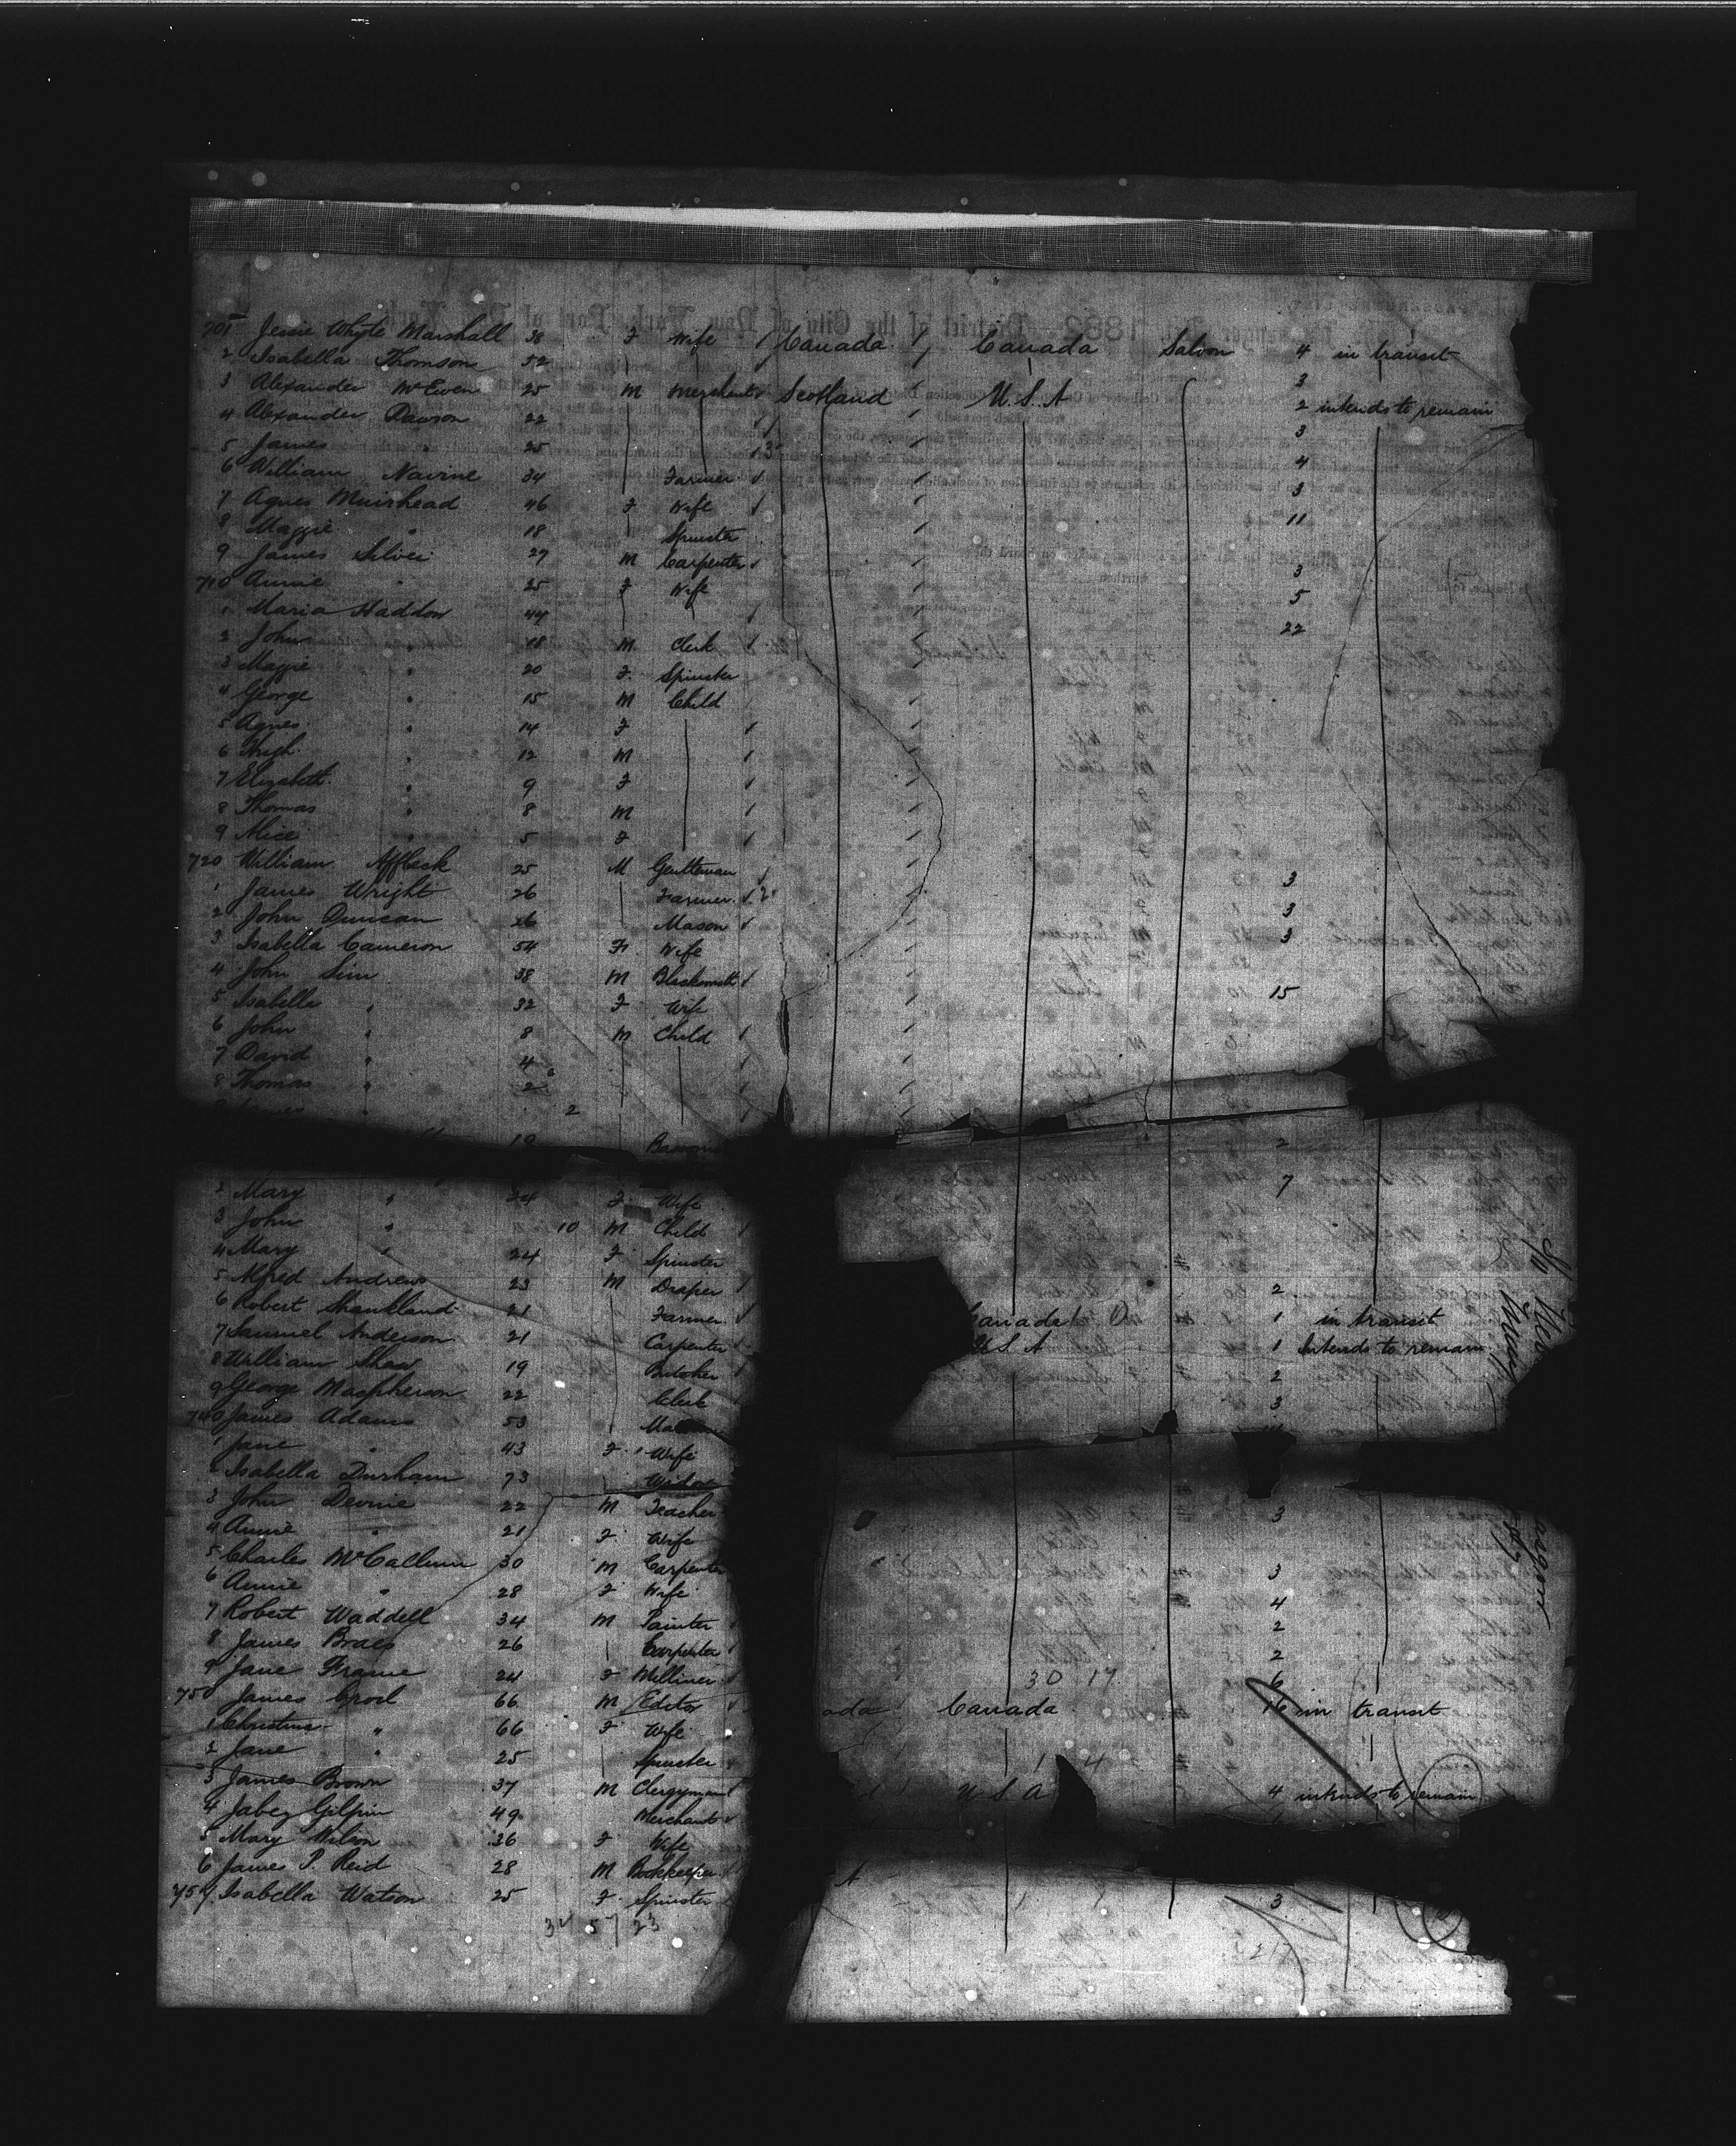 701 Jessie Whyte Marshall 38 F Wife Canada Canada Saloon 4 in transit
2 Isabella Thomson 52 3
3 Alexander McEwen 25 M Merchant Scotland U.S.A 2 intends to remain
4 Alexander Dawson 22 3
5 James " 25 4
6 William Navine 34 Farmer 3
7 Agnes Muirhead 46 F Wife 11
8 Maggie " 18 Spinster
9 James Silver 27 M Carpenter 3
710 Annie " 25 F Wife 5
1 Maria Haddon 44 22
2 John " 18 M Clerk
3 Maggie " 20 F Spinster
4 George " 15 M Child
5 Agnes " 14 F
6 Hugh " 12 M
7 Elizabeth " 9 F
8 Thomas " 8 M
9 Alice " 5 F
720 William Affleck 25 M Gentleman 3
1 James Wright 26 Farmer 3
2 John Duncan 26 Mason 3
3 Isabella Cameron 54 F Wife
4 John Sim 38 M Blacksmith 15
5 Isabella " 32 F Wife
6 John " 8 M Child
7 David " 4
8 Thomas " 2
" 2
19 2
2 Mary " 24 F Wife 7
3 John " 10 M Child
4 Mary " 24 F Spinster
5 Alfred Andrews 23 M Draper 2
6 Robert Shankland 21 Farmer Canada 1 in transit
7 Samuel Anderson 21 Carpenter U S A 1 Intends to remain
8 William Shaw 19 Butcher 2
9 George Macpherson 22 Clerk 3
740 James Adams 53 Ma
1 Jane " 43 F Wife
2 Isabella Durham 73 Widow
3 John Devine 22 M Teacher 3
4 Annie " 21 F Wife
5 Charles McCallum 30 M Carpenter 3
6 Annie " 28 F Wife 4
7 Robert Waddell 34 M Painter 2
8 James Braes 26 Carpenter 2
9 Jane Frame 24 F Milliner 30 17 6
750 James Crod 66 M Editor ada Canada 16 in transit
1 Christina " 66 F Wife
2 Jane " 25 Spinster 1 4
3 James Brown 37 M Clergyman d U S A 4 intends to remain
4 Jabez Gilpin 49 Merchant
5 Mary Wilson 36 F Wife
6 James P. Reid 28 M Bookkeeper A
757 Isabella Watson 25 F Spinster 3
34 57 23
217